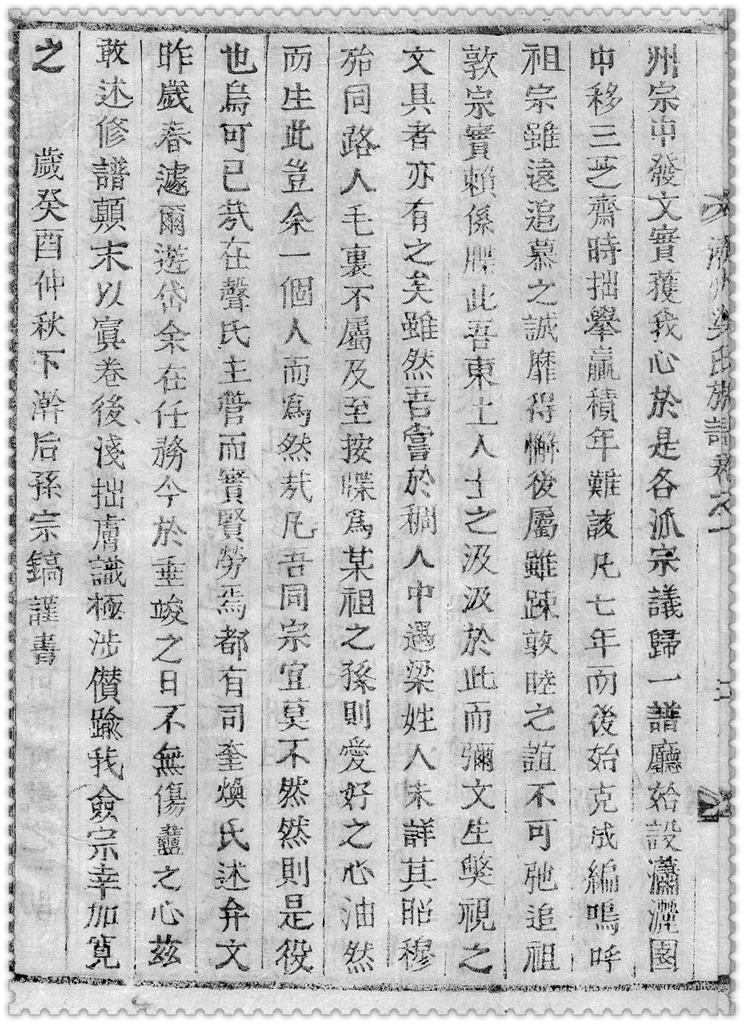 州宗中發文實獲我心於是各派宗議歸一譜廳始設瀟灑園
中移三芝齋時拙擧贏積年難該凡七年而後始克成編嗚呼
祖宗雖遠追慕之誠靡得懈後屬雖踈敦睦之誼不可弛追祖
敦宗實賴係牒此吾東土人士之汲汲於此而彌文生獘視之
文具者亦有之矣雖然吾嘗於稠人中遇梁姓人未詳其昭穆
殆同路人毛裏不屬及至按牒爲某祖之孫則愛好之心油然
而生此豈余一個人而爲然㢤凡吾同宗宜莫不然然則是役
也烏可已㢤在聲氏主管而實賢勞焉都有司奎煥氏述弁文
昨歲春遽爾遊岱余在任務今於垂竣之日不無傷盡之心玆
敢述修譜顛末以寘卷後淺拙膚識極涉僣踰我僉宗幸加寬
之　歲癸酉仲秋下澣后孫宗鎬謹書
州梁氏族譜卷之一